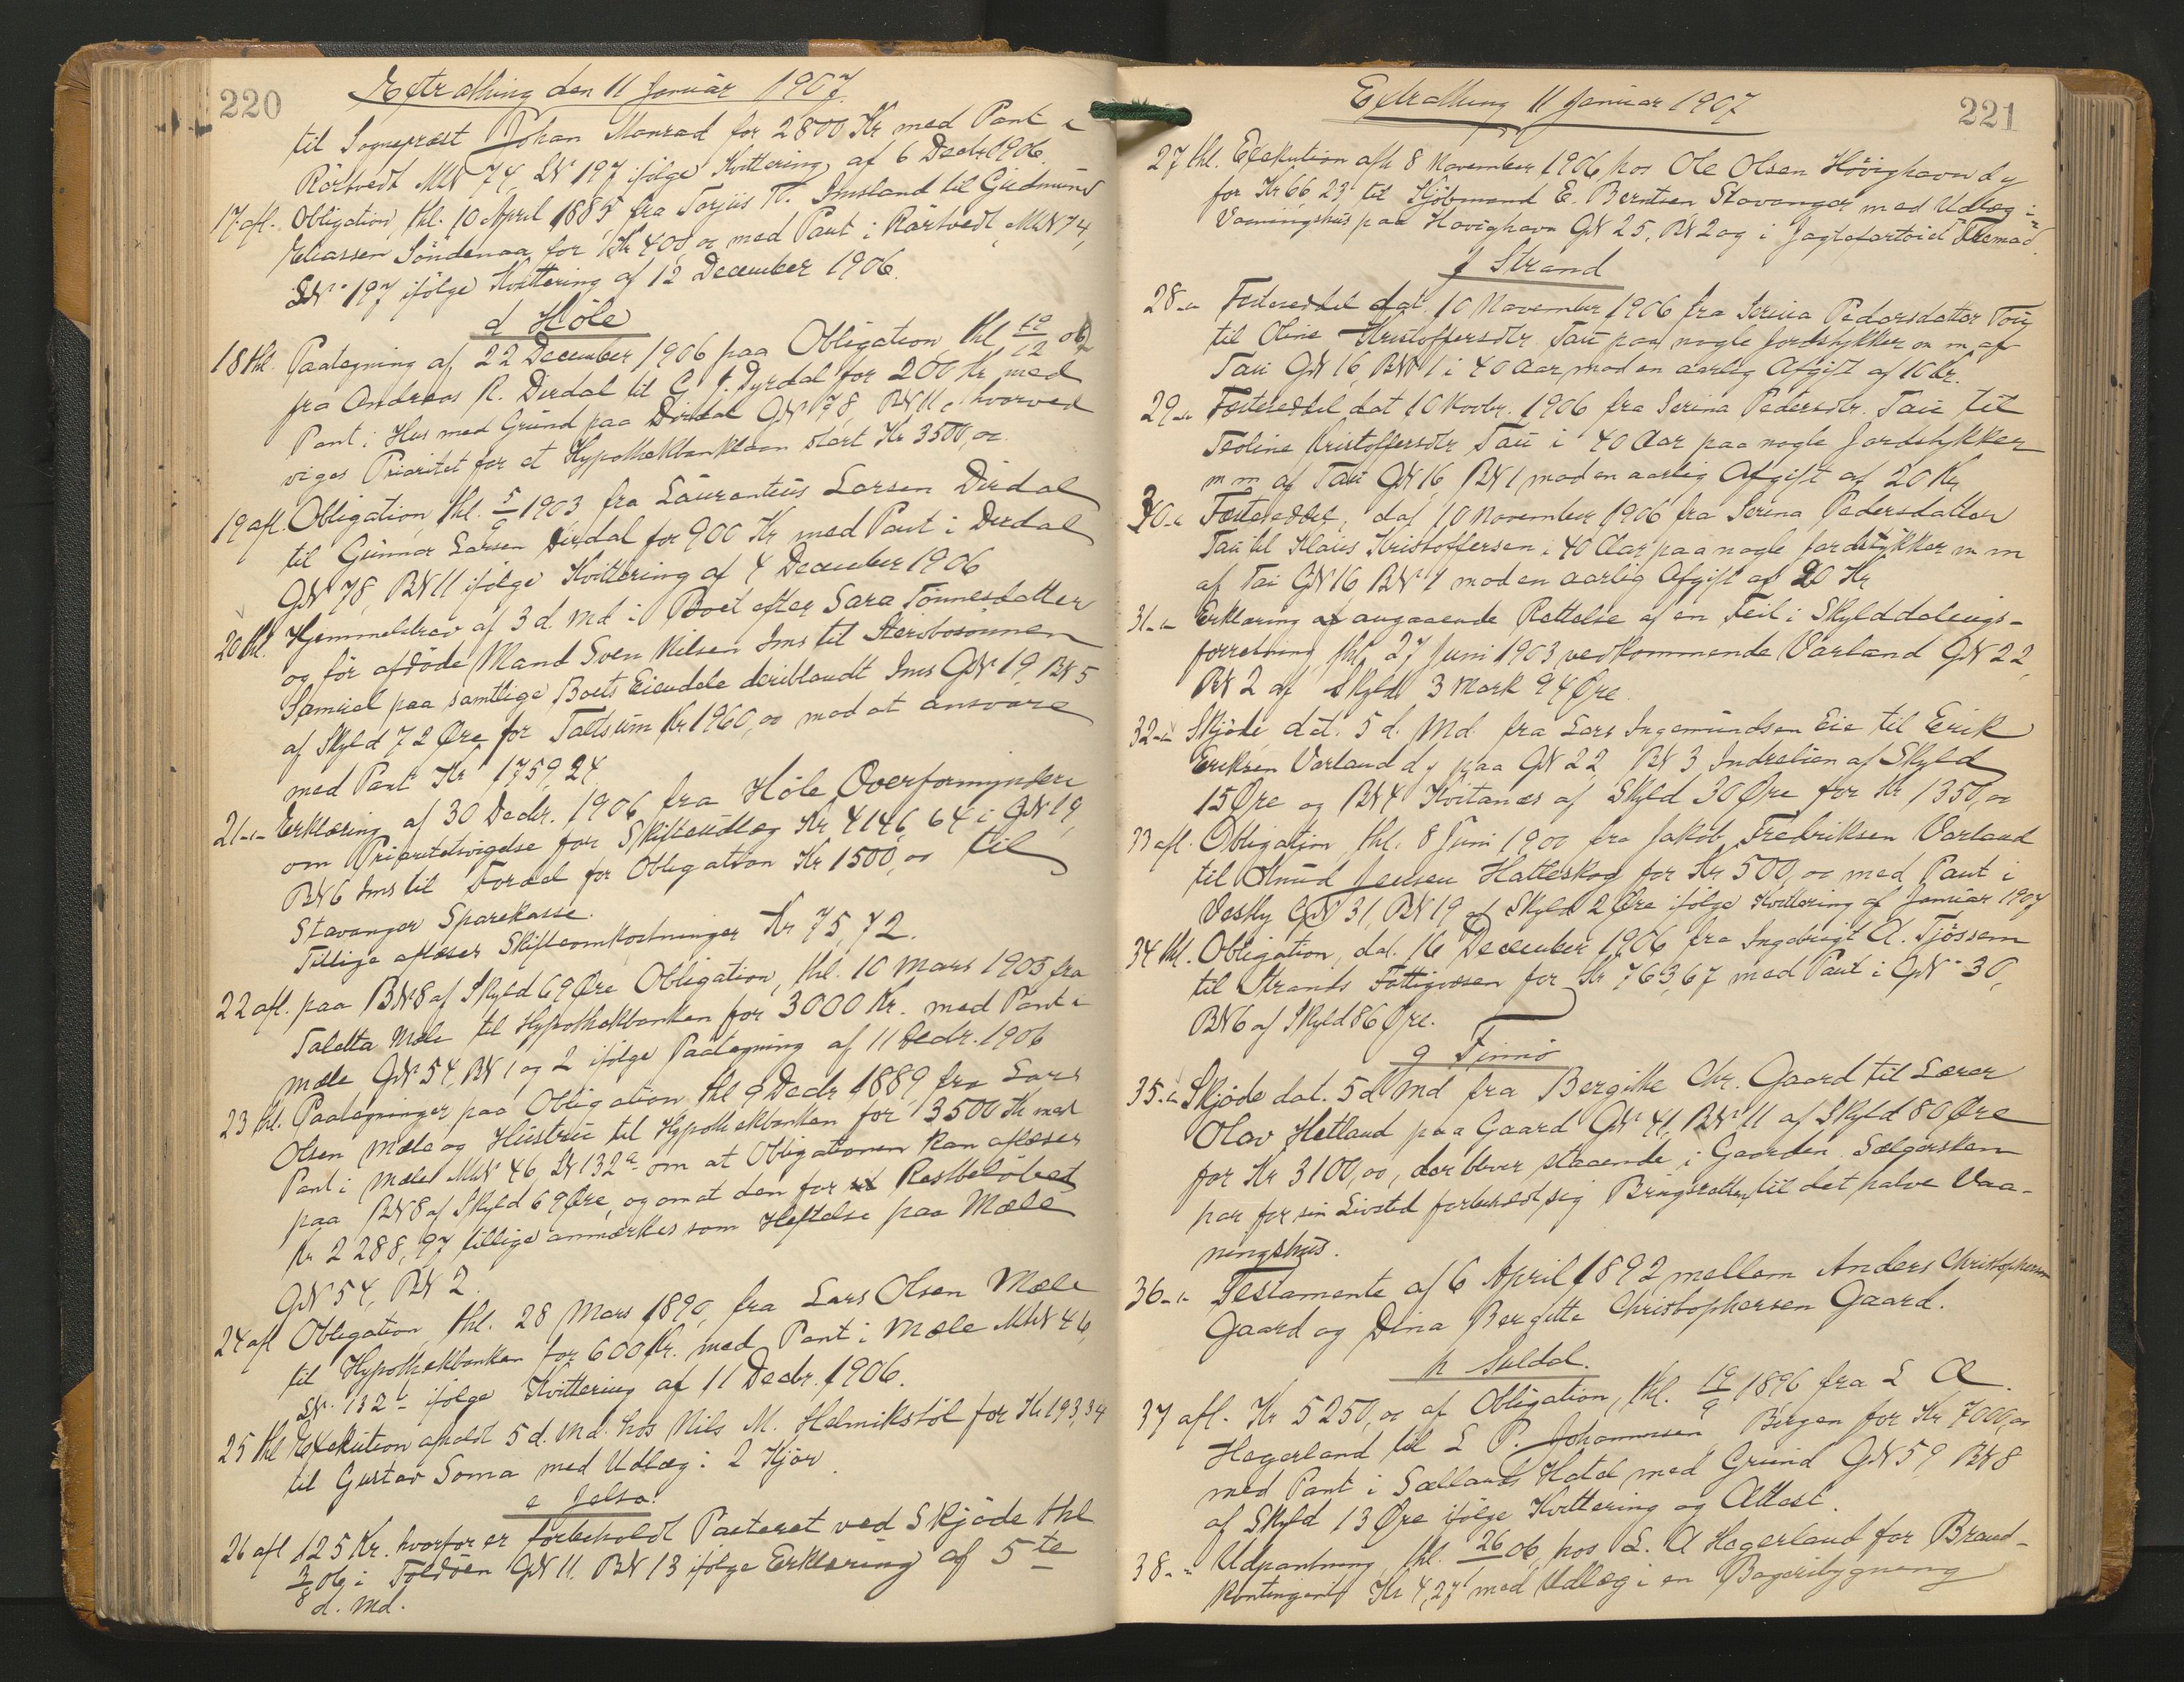 220
Extrathing den 11 Januar 1907.
til Sogneprest Johan Monrad for 2800 Kr med Pant i
Rörtvedt MN 74, LN 197 ifølge Kvittering af 6 Decbr 1906.
17 afl. Obligation, thl. 10 April 1885 fra Torjus T. Imsland til Gudmund
Eliassen Söndenaa for Kr 400,00 med Pant i Rörtvedt, MN 74,
LN. 197 ifölge Kvittering af 12 December 1906.
d Höle
18 thl. Paategning af 22 December 1906 paa Obligation, thl 10/12 06
fra Andreas R. Dirdal til G J. Dyrdal for 200 Kr med
Pant i Hus med Grund paa Dirdal GN 78 BN 11, hvorved
viges Prioritet for et Hypothekbanklaan stort Kr 3500,00.
19 afl. Obligation, thl. 5/9 1903 fra Laurentius Larsen Dirdal
til Gunnar Larsen Dirdal for 900 Kr med Pant i Dirdal
GN 78, BN 11 ifølge Kvittering af 4 December 1906
20 thl. Hjemmelsbrev af 3 d. Md i Boet efter Sara Tönnesdatter
og för afdöde Mand Sven Nilsen Ims til Stervbosönnen
Samuel paa samtlige Boets Eiendele deriblandt Ims GN 19, BN 5
af Skyld 72 Øre for Taltsum Kr 1960,00 mod at ansvare
med Pant Kr 1759,24
21 -"- Erklæring af 30 Decbr. 1906 fra Höle Overformynderi
om Prioritetsvigelse for Skifteudlæg Kr 4146,64 i GN 19,
BN 6 Ims til Fordel for Obligation Kr 1500,00 til
Stavanger Sparekasse.
Tillige aflæses Skifteomkostninger Kr 75,72.
22 afl. paa BN 8 af Skyld 69 Øre Obligation, thl. 10 Mars 1905 fra
Taletta Mæle til Hypothekbanken for 3000 Kr. med Pant i
Mæle GN 54, BN 1 og 2 ifølge Paategning af 11 Decbr. 1906
23 thl. Paategninger paa Obligation thl 9 Decbr 1889 fra Lars
Olsen Mæle og Hustru til Hypothekbanken for 13500 Kr med
Pant i Mæle MN 46, LN 132a om at Obligationen kan aflæses
paa BN 8 af Skyld 69 Øre, og om at den for Restbelöbet
Kr 2288,97 tillige anmærkes som Heftelse paa Mæle
GN 54, BN 2.
24 afl Obligation, thl. 28 Mars 1890, fra Lars Olsen Mæle
til Hypothekbanken for 600 Kr. med Pant i Mæle MN 46,
LN. 132b ifølge Kvittering af 11 Decbr. 1906.
25 thl Exekution afholdt 5 d. Md. hos Nils M. Helmikstöl for Kr 193,34
til Gustav Soma med Udlæg i 2 Kjör
e Jelsa.
26 afl 125 Kr. hvorfor er forbeholdt Panteret ved Skjöde thl
3/8 06 i Foldöen GN 11. BN 13 ifølge Erklæring af 5te
d. Md.
221
Extrathing 11 Januar 1907
27 thl. Exekution afh 8 November 1906 hos Ole Olsen Hövighavn d y
for Kr 66,23 til Kjöbmand E. Berntsen Stavanger med Udlæg i
Vaaningshus paa Hövighavn GN 25, BN 2 og i Jagtefartöiet Fremad.
f Strand
28 -"- Festeseddel dat. 10 November 1906 fra Serina Pedersdatter Tou
til Oline Kristoffersdtr Tau paa nogle Jordstykker m m af
Tau GN 16, BN 1 i 40 Aar mod en aarlig Afgift af 10 Kr.
29 -"- Festeseddel dat 10 Novbr. 1906 fra Serina Pedersdtr. Tau til
Teoline Kristoffersdtr Tau i 40 Aar paa nogle Jordstykker
m m af Tau GN 16, BN 1 mod en aarlig Afgift af 20 Kr
30 -"- Festeseddel, dat 10 November 1906 fra Serina Pedersdatter
Tau til Klaus Kristoffersen i 40 Aar paa nogle Jordstykker m m
af Tau GN 16 BN 1 mod en aarlig Afgift af 20 Kr
31 -"- Erklæring angaaende Rettelse af en Feil i Skylddelings-
forretning thl 27 Juni 1903 vedkommende Varland GN 22,
BN 2 af Skyld 3 Mark 94 Øre.
32 -"- Skjöde, dat. 5 d. Md. fra Lars Ingemundsen Eie til Erik
Eriksen Varland d y paa GN 22, BN 3 Indrelien af Skyld
15 Øre og BN 4 Kvitanæs af Skyld 30 Øre for Kr 1350,00
33 afl. Obligation, thl. 8 Juni 1900 fra Jakob Fredriksen Varland
til Knud Jensen Hatleskog for Kr 500,00 med Pant i
Vasky GN 31, BN 19 af Skyld 2 Øre ifølge Kvittering af Januar 1907
34 thl. Obligation, dat. 16 December 1906 fra Ingebrigt A. Tjössem
til Strands Fattigvæsen for Kr 763,67 med Pant i GN 30,
BN 6 af Skyld 86 Øre.
g Finnö
35 -"- Skjöde dat. 5 d Md fra Bergitte Chr. Gaard til Lærer
Olav Hetland paa Gaard GN 41, BN 11 af Skyld 80 Øre
for Kr 3100,00, der bliver staaende i Gaarden. Sælgersken
har for sin Livstid forbeholdt sig Brugsretten til det halve Vaa-
ningshus.
36 -"- Testamente af 6 April 1892 mellem Anders Christophersen
Gaard og Dina Bergitte Christophersen Gaard.
h Suldal.
37 afl. Kr 5250,00 af Obligation, thl. 19/9 1896 fra L A
Hegerland til L P. Johannesen Bergen for Kr 7000,00
med Pant i Sællands Hotel med Grund GN 59 BN 8
af Skyld 13 Øre ifølge Kvittering og Attest.
38 -"- Udpantning thl. 06 hos L. A Hegerland for Brand-
kontingent Kr 4,27 med Udlæg i en Bageribygning